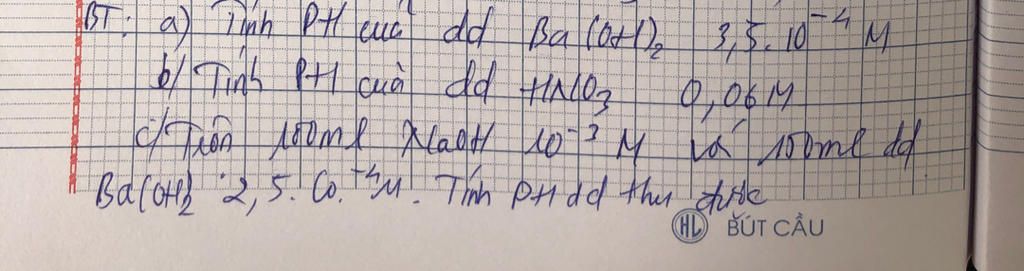 BT: a) Tính PH cuả dd Ba(OH)₂ 3,5.10⁻⁴ M
b) Tính PH cuả dd HNO₃ 0,06M
c) Trộn 100ml NaOH 10⁻³ M và 100ml dd
Ba(OH)₂ 2,5.10.⁻⁴M. Tính PH dd thu được
HL BÚT CẦU